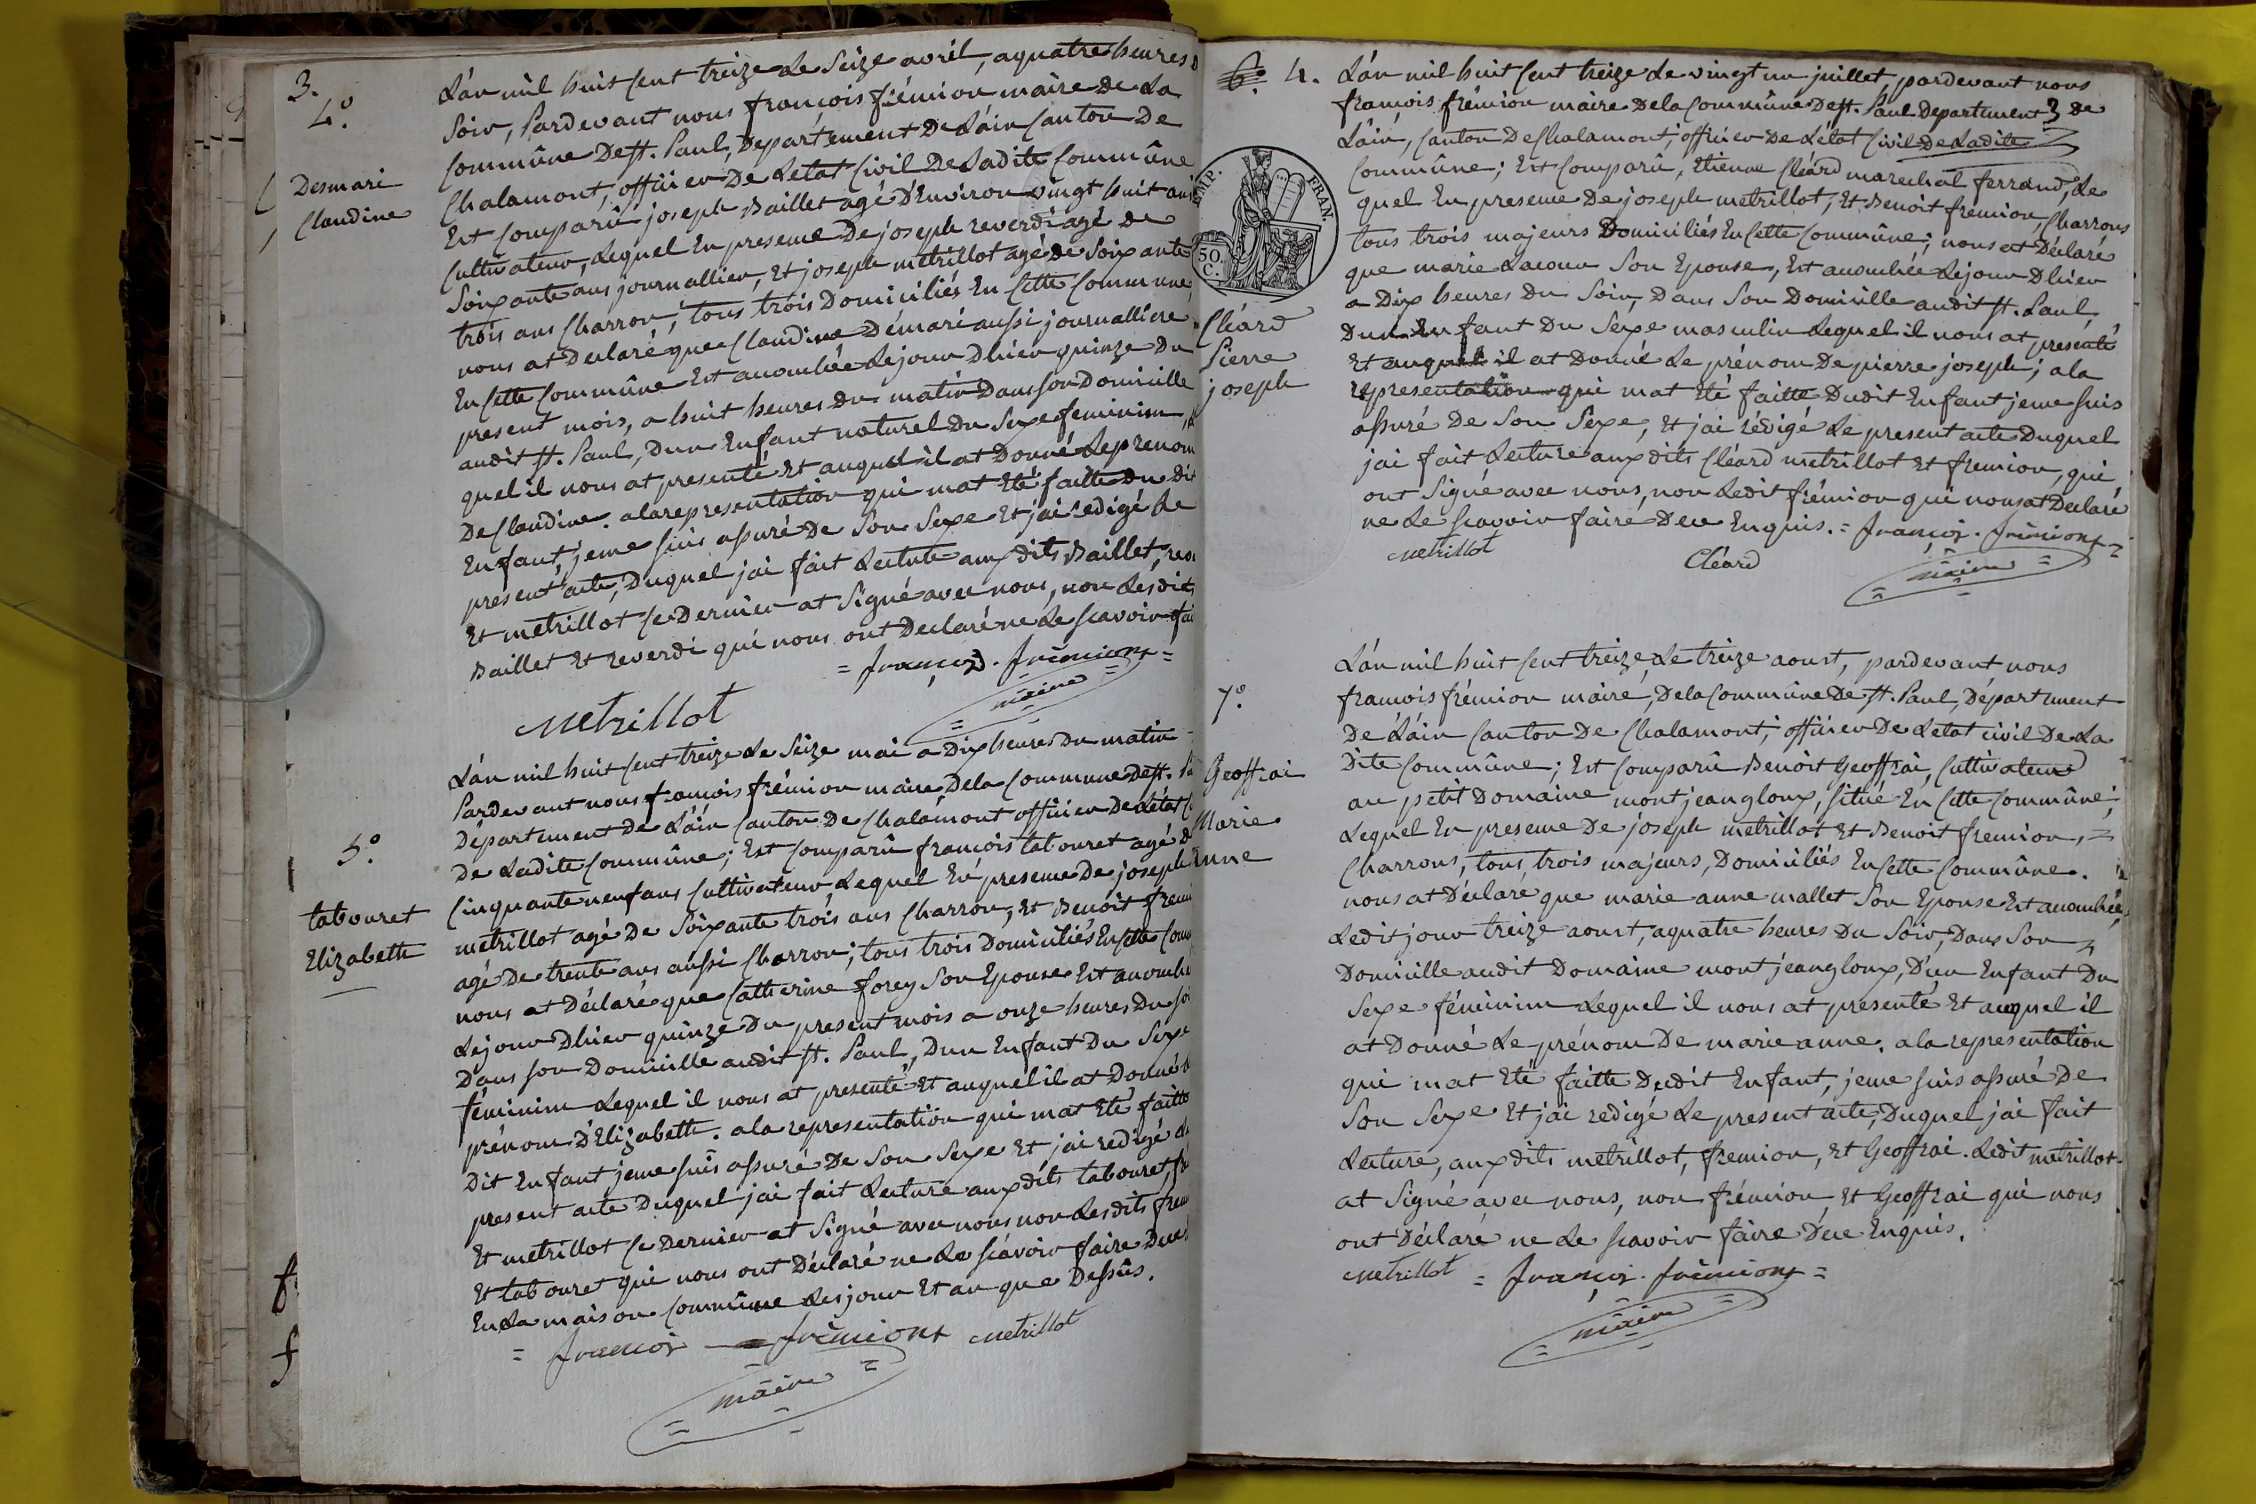 3.
4.º
Desmari
Claudine
L'án mil huit Cent treize Le Seize avril, aquatre heures d
Soir, Pardevant nous françois frémion maire De La
Commûne De St. Paul, Département De L'áin Canton De
Chalamont, officier De Letat Civil De Ladite Commûne
Est Comparû joseph Baillet agé D'Environ vingt huit ans
Cultivateur, Lequel En presence De joseph reverdi agé de
Soixante ans journallier, Et joseph metrillot agé de Soixante
trois ans Charron, tous trois Domiciliés En Cette Commune,
nous at Declaré que Claudine Démari aussi journalliere
En Cette Commûne Est accouchée Lejour Dhier quinze Du
present mois, a huit heures du matin Dans son Domicille
audit St. Paul, Dun Enfant naturel Du Sexe feminim,
quel il nous at presenté Et auquel il at Donné Leprenom
De Claudine. ala representation qui mat Eté faitte Du dit
Enfant, jeme suis assuré De Son Sexe Et jai redigé Le
present acte, Duquel jai fait Lecture aux dits Baillet, rev
Et metrillot Ce Dernier at Signé avec nous, non Lesdits
Baillet Et reverdi qui nous ont Declaré ne Le scavoir fai
= françois. frémiont =
Metrillot maire
5.º
tabouret
Elizabeth
L'án mil huit Cent treize Le Seize mai a Dix heures Du matin
Pardevant nous françois frémion maire Dela Commune De St. Pa
Département De L'áin Canton De Chalamont officier De Létat C
De Ladite Commûne; Est Comparû françois tabouret agé d
Cinquante neuf ans Cultivateur Lequel En presence De joseph
metrillot agé De Soixante trois ans Charron, Et Benoit fremi
agé De trente ans aussi Charron; tous trois Domiciliés En Cette Com
nous at Déclaré que Catherine forey Son Epouse Est accouché
Lejour Dhier quinze Du present mois a onze heures Du soi
Dans son Domicille audit St. Paul, Dun Enfant Du Sexe
féminim Lequel il nous at presenté Et auquel il at Donné
prénom D'Elizabeth. ala representation qui mat Eté faitte
Dit Enfant jeme suis assuré De Son Sexe Et jai redigé
present acte Duquel jai fait Lecture aux dits tabouret, fr
Et metrillot Ce Dernier at Signé avec nous non Lesdits frem
Et tabouret qui nous ont Déclaré ne Le scavoir faire Dece
En La maison Commûne Les jour Et an que Dessûs.
= françois frémiont Metrillot
maire
6.º 4.
IMP. FRAN.
50. C.
Cléard
Pierre
joseph
L'án mil huit Cent treize Le vingt un juillet, pardevant nous
françois frémion maire Dela Commûne De St. Paul Departement de
L'áin, Canton De Chalamont, officier De Létat Civil De Ladite
Commûne; Est Comparû, Etienne Cléard marechal ferrand, Le
quel En presence De joseph metrillot, Et Benoit fremion, Charrons
tous trois majeurs Domiciliés En Cette Commûne; nous at Déclaré
que marie Lacour Son Epouse, Est accouchée Lejour Dhier
a Dix heures Du Soir, Dans Son Domicille audit St. Paul,
Dun Enfant Du Sexe masculin Lequel il nous at presenté
Et auquel il at Donné Le prénom De pierre joseph; a la
representation qui mat Eté faitte Dudit Enfant jeme suis
assuré De Son Sexe, Et jai rédigé Le present acte Duquel
jai fait Lecture aux dits Cléard metrillot Et fremion, qui
ont Signé avec nous, non Ledit frémion qui nous at Declaré
ne Le scavoir faire Dece Enquis. = françois. frémiont =
Metrillot Cléard maire
7.º
Geoffrai
Marie
anne
L'án mil huit Cent treize, Le treize aoust, pardevant nous
françois frémion maire, Dela Commûne De St. Paul, Département
De L'áin Canton De Chalamont, officier De Letat civil De La
Dite Commûne; Est Comparû Benoit Geoffrai, Cultivateur
au petit Domaine montjeangloux, situé En Cette Commûne;
Lequel En presence De joseph metrillot Et Benoit fremion, =
Charrons, tous trois majeurs, Domiciliés En Cette Commûne.
nous at Déclaré que marie anne mallet Son Epouse Est accouchée,
Ledit jour treize aoust, aquatre heures Du Soir, Dans Son
Domicille audit Domaine montjeangloux, D'un Enfant Du
Sexe féminim Lequel il nous at presenté Et auquel il
at Donné Le prénom De marie anne. a la representation
qui mat Eté faitte Dudit Enfant, jeme suis assuré De
Son Sexe Et jai redigé Le present acte, Duquel jai fait
Lecture, aux dits metrillot, fremion, Et Geoffrai. Ledit metrillot
at Signé avec nous, non frémion Et Geoffrai qui nous
ont Déclaré ne Le scavoir faire Dece Enquis.
Metrillot = françois. frémiont =
maire